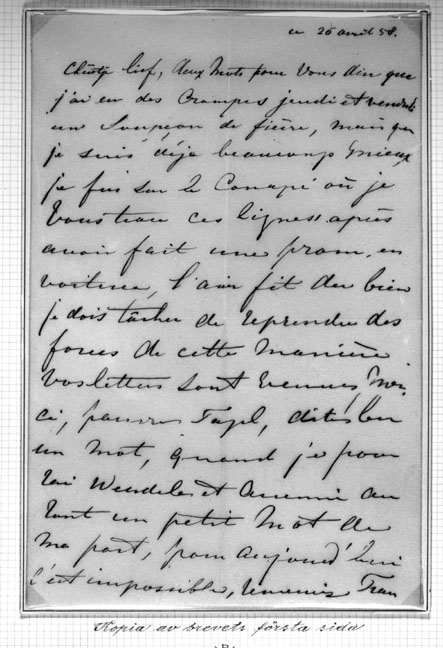 ce 26 avril 58.
lief, deux Mots pour Vous dire que
j'ai eu des Crampes jeudi et vendredi
un Soupçon de fièvre, mais que
je suis déja beaucoup mieux,
je suis sur le Canapé où je
Vous trace ces lignes après
avoir fait une prom. en
voiture, l'air fit du bien
je dois tâcher de reprendre des
forces de cette Manière
Vos lettres sont venues, Mer-
ci, pauvre dites leur
un Mot, quand je pour
rai et
tout un petit Mot de
Ma part, pour aujourd'hui
c'est impossible,
Kopia av brevets första sida